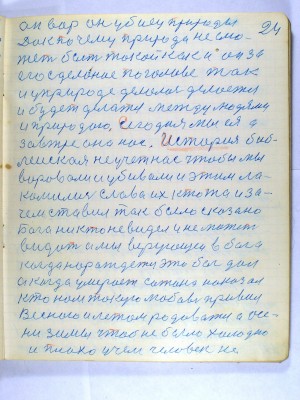 24
он вор он убиец природы
Вот почему природа не смо-
жет быть такой как и он за
его сделаное по голове так
и у природе делалося делается
и будет делатся между людями
и природою. Сегодня мы ея а
завтре она нас. История биб-
лейская не учет нас чтобы мы
воровали и убивали и этим ла-
комилися слава их кто та и за-
чем ставил так было сказано
Бога никто не видел и не может
видеть а мы верующеи в бога
когда нарождается это бог дал
а когда умерает сатана наказал
кто нам такую любовь привил
Весною и летом родовати а осе-
ни зимы чтоб не было холодно
и плохо и чем человек не